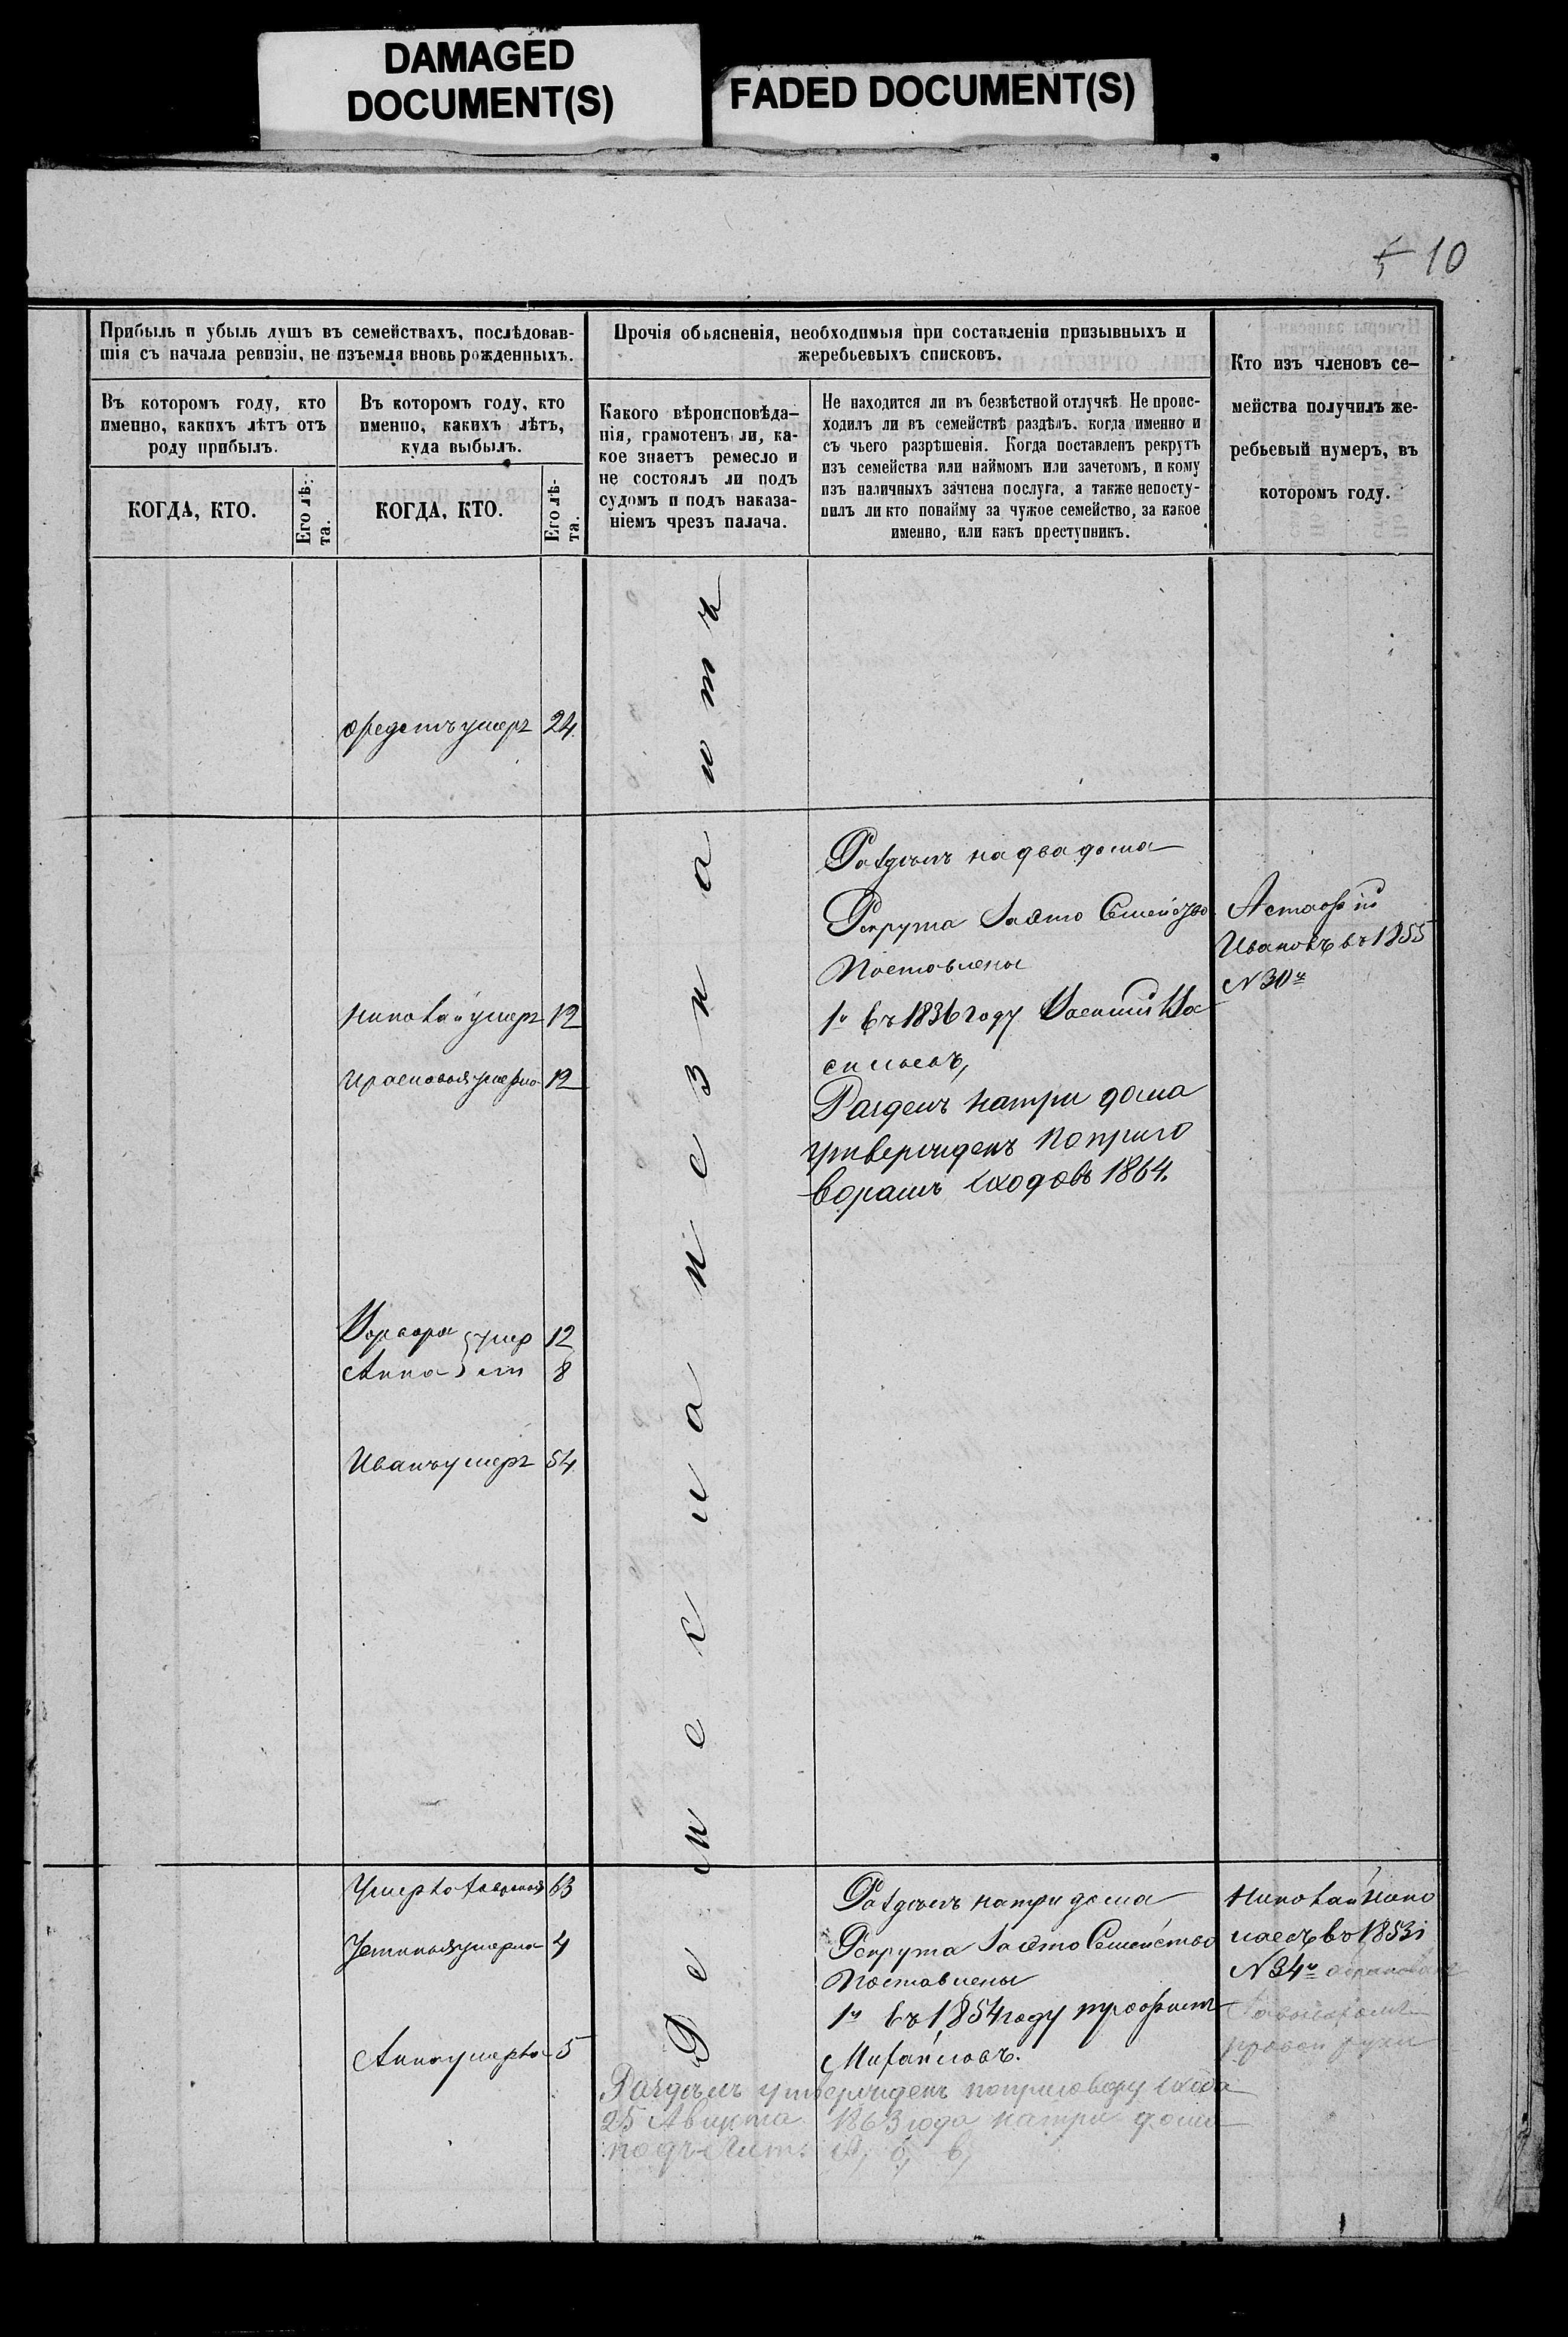 DAMAGED
DOCUMENT(S)
FADED DOCUMENT(S)
5 10
Прибыль и убыль душъ въ семействахъ, послѣдовав-
шія съ начала ревизіи, не изъемля вновь рожденныхъ.
Въ которомъ году, кто
именно, какихъ лѣтъ отъ
роду прибылъ.
КОГДА, КТО.
Его лѣ-
та.
Въ которомъ году, кто
именно, какихъ лѣтъ,
куда выбылъ.
КОГДА, КТО.
Его лѣ-
та.
Прочія объясненія, необходимыя при составленіи призывныхъ и
жеребьевыхъ списковъ.
Какого вѣроисповѣда-
нія, грамотенъ ли, ка-
кое знаетъ ремесло и
не состоялъ ли подъ
судомъ и подъ наказа-
ніемъ чрезъ палача.
Не находится ли въ безвѣстной отлучкѣ Не проис-
ходилъ ли въ семействѣ раздѣлъ. когда именно и
съ чьего разрѣшенія. Когда поставленъ рекрутъ
изъ семейства или наймомъ или зачетомъ, и кому
изъ наличныхъ зачтена послуга, а также непосту-
пилъ ли кто понайму за чужое семейство, за какое
именно, или какъ преступникъ.
Кто изъ членовъ се-
мейства получилъ же-
ребьевый нумеръ, въ
которомъ году.
умеръ 24
Николай умеръ 12
умерла 12
Варвара умер 12
Анна ли 8
Иванъ умеръ 54
Раздѣлъ на два дома
Рекрута Заэто Семейство
Поставлены
1й въ 1836 году Василій Ва
сильевъ,
Разделъ натри дома
утвержденъ поприго
ворамъ сходовъ 1864.
Астафій
Ивановъ въ 1855
N 30й
Умерла 63
Устинья умерла 4
Анна умерла 5
Раздѣлъ натри дома
Рекрута Заэто Семейство
Поставлены
1й въ 1854 году Трофимъ
Михайловъ.
Раздѣлъ утвержденъ поприговору схода
25 Августа 1863 года натри дома
подъ Лит. А, б, в,
Николай Нико
лаевъ въ 1853
N 34й
правой руки